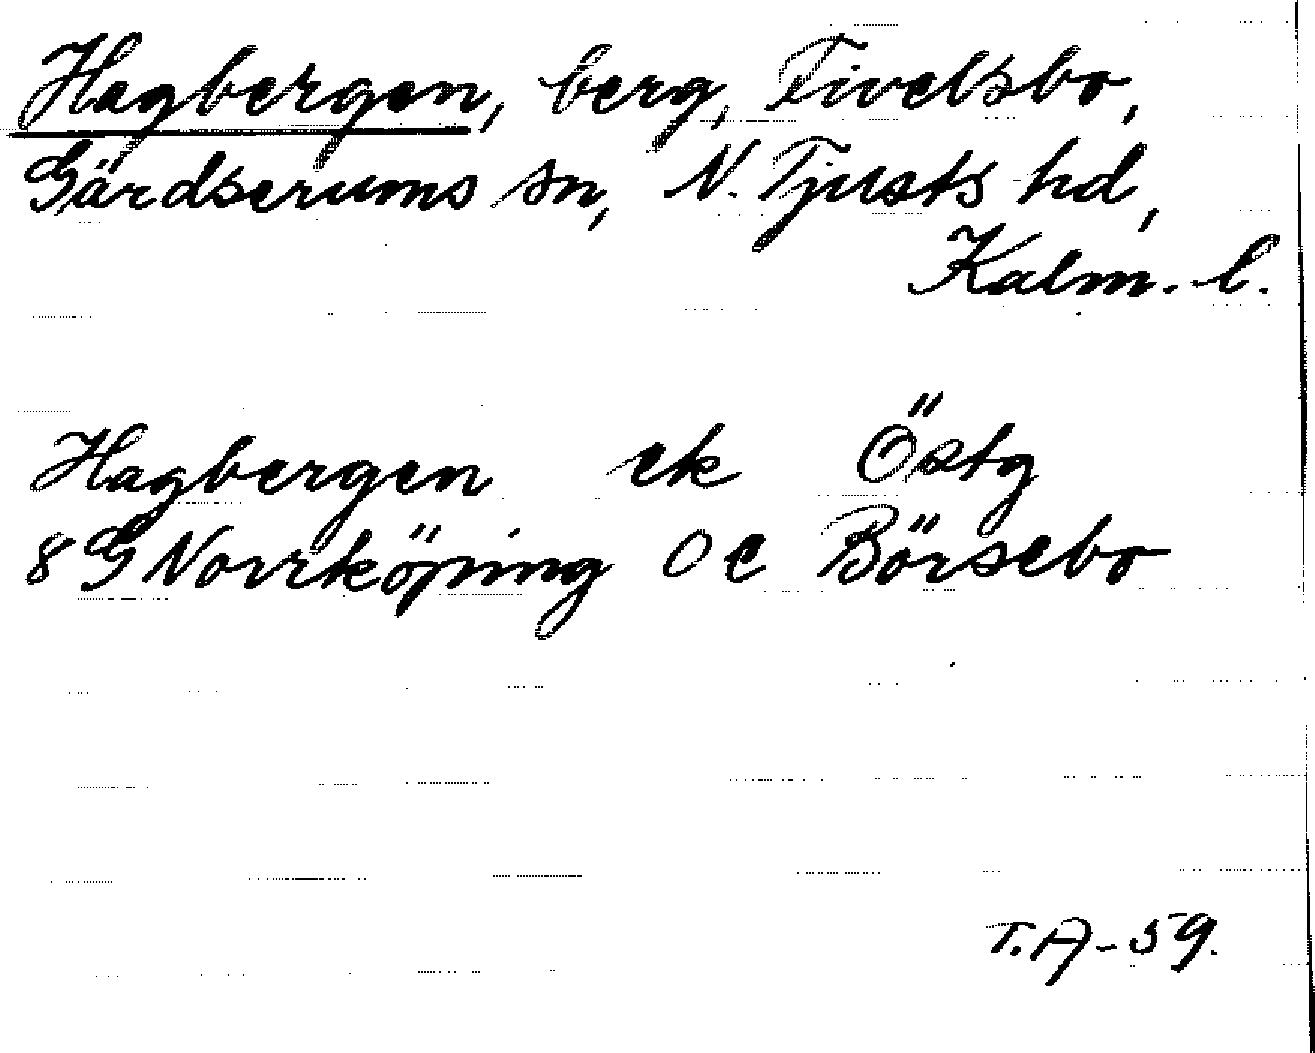 Hagbergen, berg, Fivelsbo,
Gärdserums sn, N. Tjusts hd,
Kalm. l.
Hagbergen ek Östg
8G Norrköping 0e Börsebo
T.A-59.